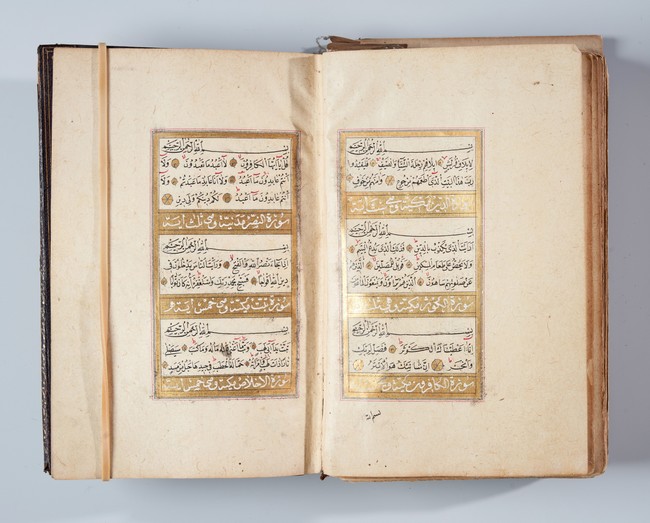 بسم الله الرحمن الرحيم
لايلاف قريش ايلافهم رحلة الشتاء والصيف فليعبدوا
رب هذا البيت الذى اطعمهم من جوع وامنهم من خوف
مكية وهى اية
بسم الله الرحمن الرحيم
ارايت الذى يكذب بالدين فذلك الذى يدع اليتيم
ولا يحض على طعام المسكين فويل للمصلين الذين هم
عن صلوتهم ساهون الذين هم يراؤن ويمنعون الماعون
سورة الكوثر مكية وهى ثلث
بسم الله الرحمن الرحيم
انا اعطيناك الكوثر فصل لربك
وانحر ان شانئك هو الابتر
سورة الكافرون مكية وهى
بسم الله الرحمن الرحيم
قل يا ايها الكافرون لا اعبد ما تعبدون ولا
انتم عابدون ما اعبد ولا انا عابد ما عبدتم ولا
انتم عابدون ما اعبد لكم دينكم ولى دين
سورة النصر مدنية وهى ثلث اية
بسم الله الرحمن الرحيم
اذا جاء نصر الله والفتح ورايت الناس يدخلون فى
دين الله افواجا فسبح بحمد ربك واستغفره انه كان توابا
سورة تبت مكية وهى خمس اية
بسم الله الرحمن الرحيم
تبت يدا ابى لهب وتب ما اغنى عنه ماله وما كسب سيصلى
نارا ذات لهب وامراته حمالة الحطب فى جيدها حبل من مسد
سورة الاخلاص مكية وهى خمس اية